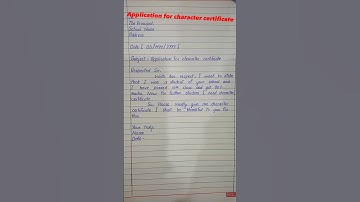 Application for character certificate
The Principal
School Name
Address
Date [ DD/MM/YYYY ]
Subject : Application for character certificate
Respected Sir,
With due respect, I want to state
that I was a student of your school and
I have passed class and got
marks. Now for further studies I need character
certificate.
So Please kindly give me character
certificate. I shall be thankful to you for
this.
Your truly
Name
Date